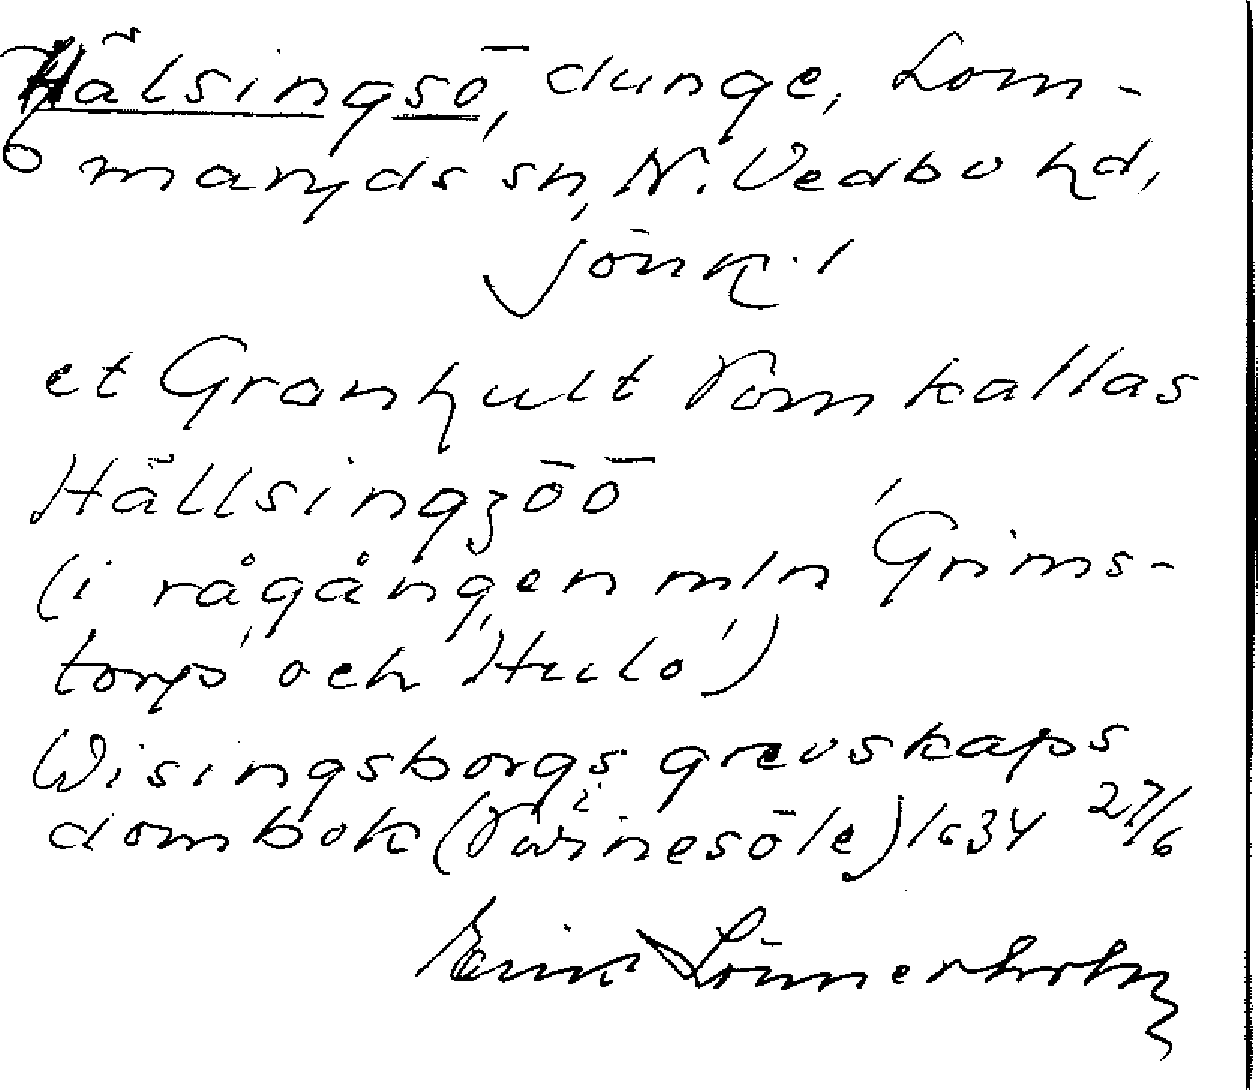 Hälsingsö, dunge, Lom-
maryds sn, N. Vedbo hd,
Jönk. l
et Granhult som kallas
Hällsingzöö
(i rågången mln 'Grims-
torp' och 'Hulo')
Wisingsborgs grevskaps
dombok 1634 27/6
Erik Lönnerholm